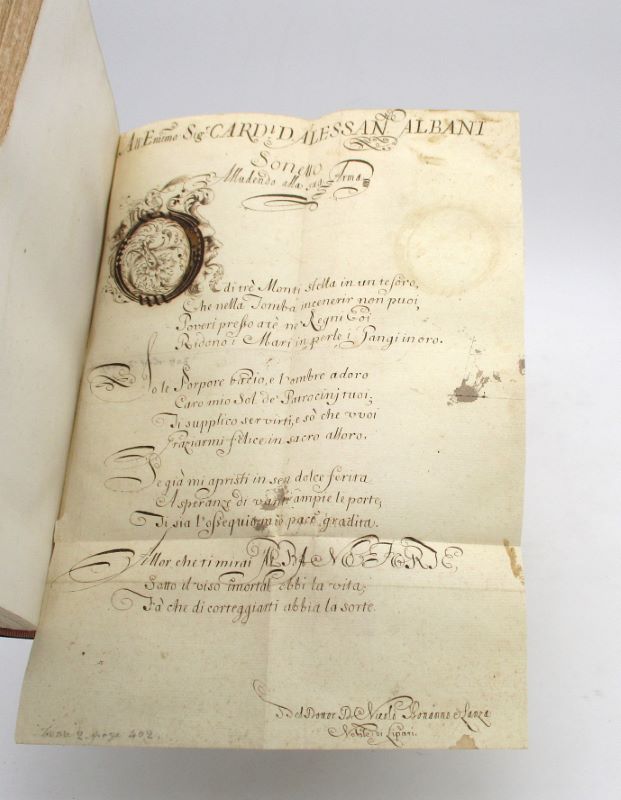 All' Em̃mo Sigr CARD.l D'ALESSAN.o ALBANI
Sonetto
Alludendo alla sua Arma
O di trè Monti stella in un tesoro,
Che nella Tomba incenerir non puoi,
Poveri presso a tè ne' Regni Eoi
Ridono i Mari in perle, i Gangi in oro.
Io le Porpore bacio, e l'ombre adoro
Caro mio Sol de' Patrocinj tuoi;
Ti supplico servirti, e sò che vuoi
Graziarmi felice in sacro alloro.
Se già mi apristi in sen dolce ferita
A speranze di ampie le porte,
Ti sia l'ossequio mio gradita.
Allor, che ti mirai FORTE,
Sotto il viso im̃ortal ebbi la vita;
Fà che di corteggiarti abbia la sorte.
Del Donor D. Bonanno e Lanza
Nobile di Lipari.
Tomo 2 page 402.